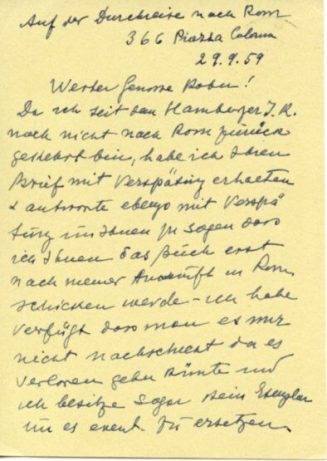 Auf der Durchreise nach Rom
366 Piazza Colonna
29.9.59
Werter Genosse Rabu!
Da ich seit dem Hamburger I.K.
noch nicht nach Rom zurück
gekehrt bin, habe ich Ihren
Brief mit Verspätung erhalten
& antworte ebenso mit Verspä
tung um Ihnen zu sagen dass
ich Ihnen das Buch erst
nach meiner Ankunft in Rom
schicken werde – ich habe
verfügt dass man es mir
nicht nachschickt da es
verloren gehn könnte und
ich besitze sogar kein Exemplar
um es event. zu ersetzen.